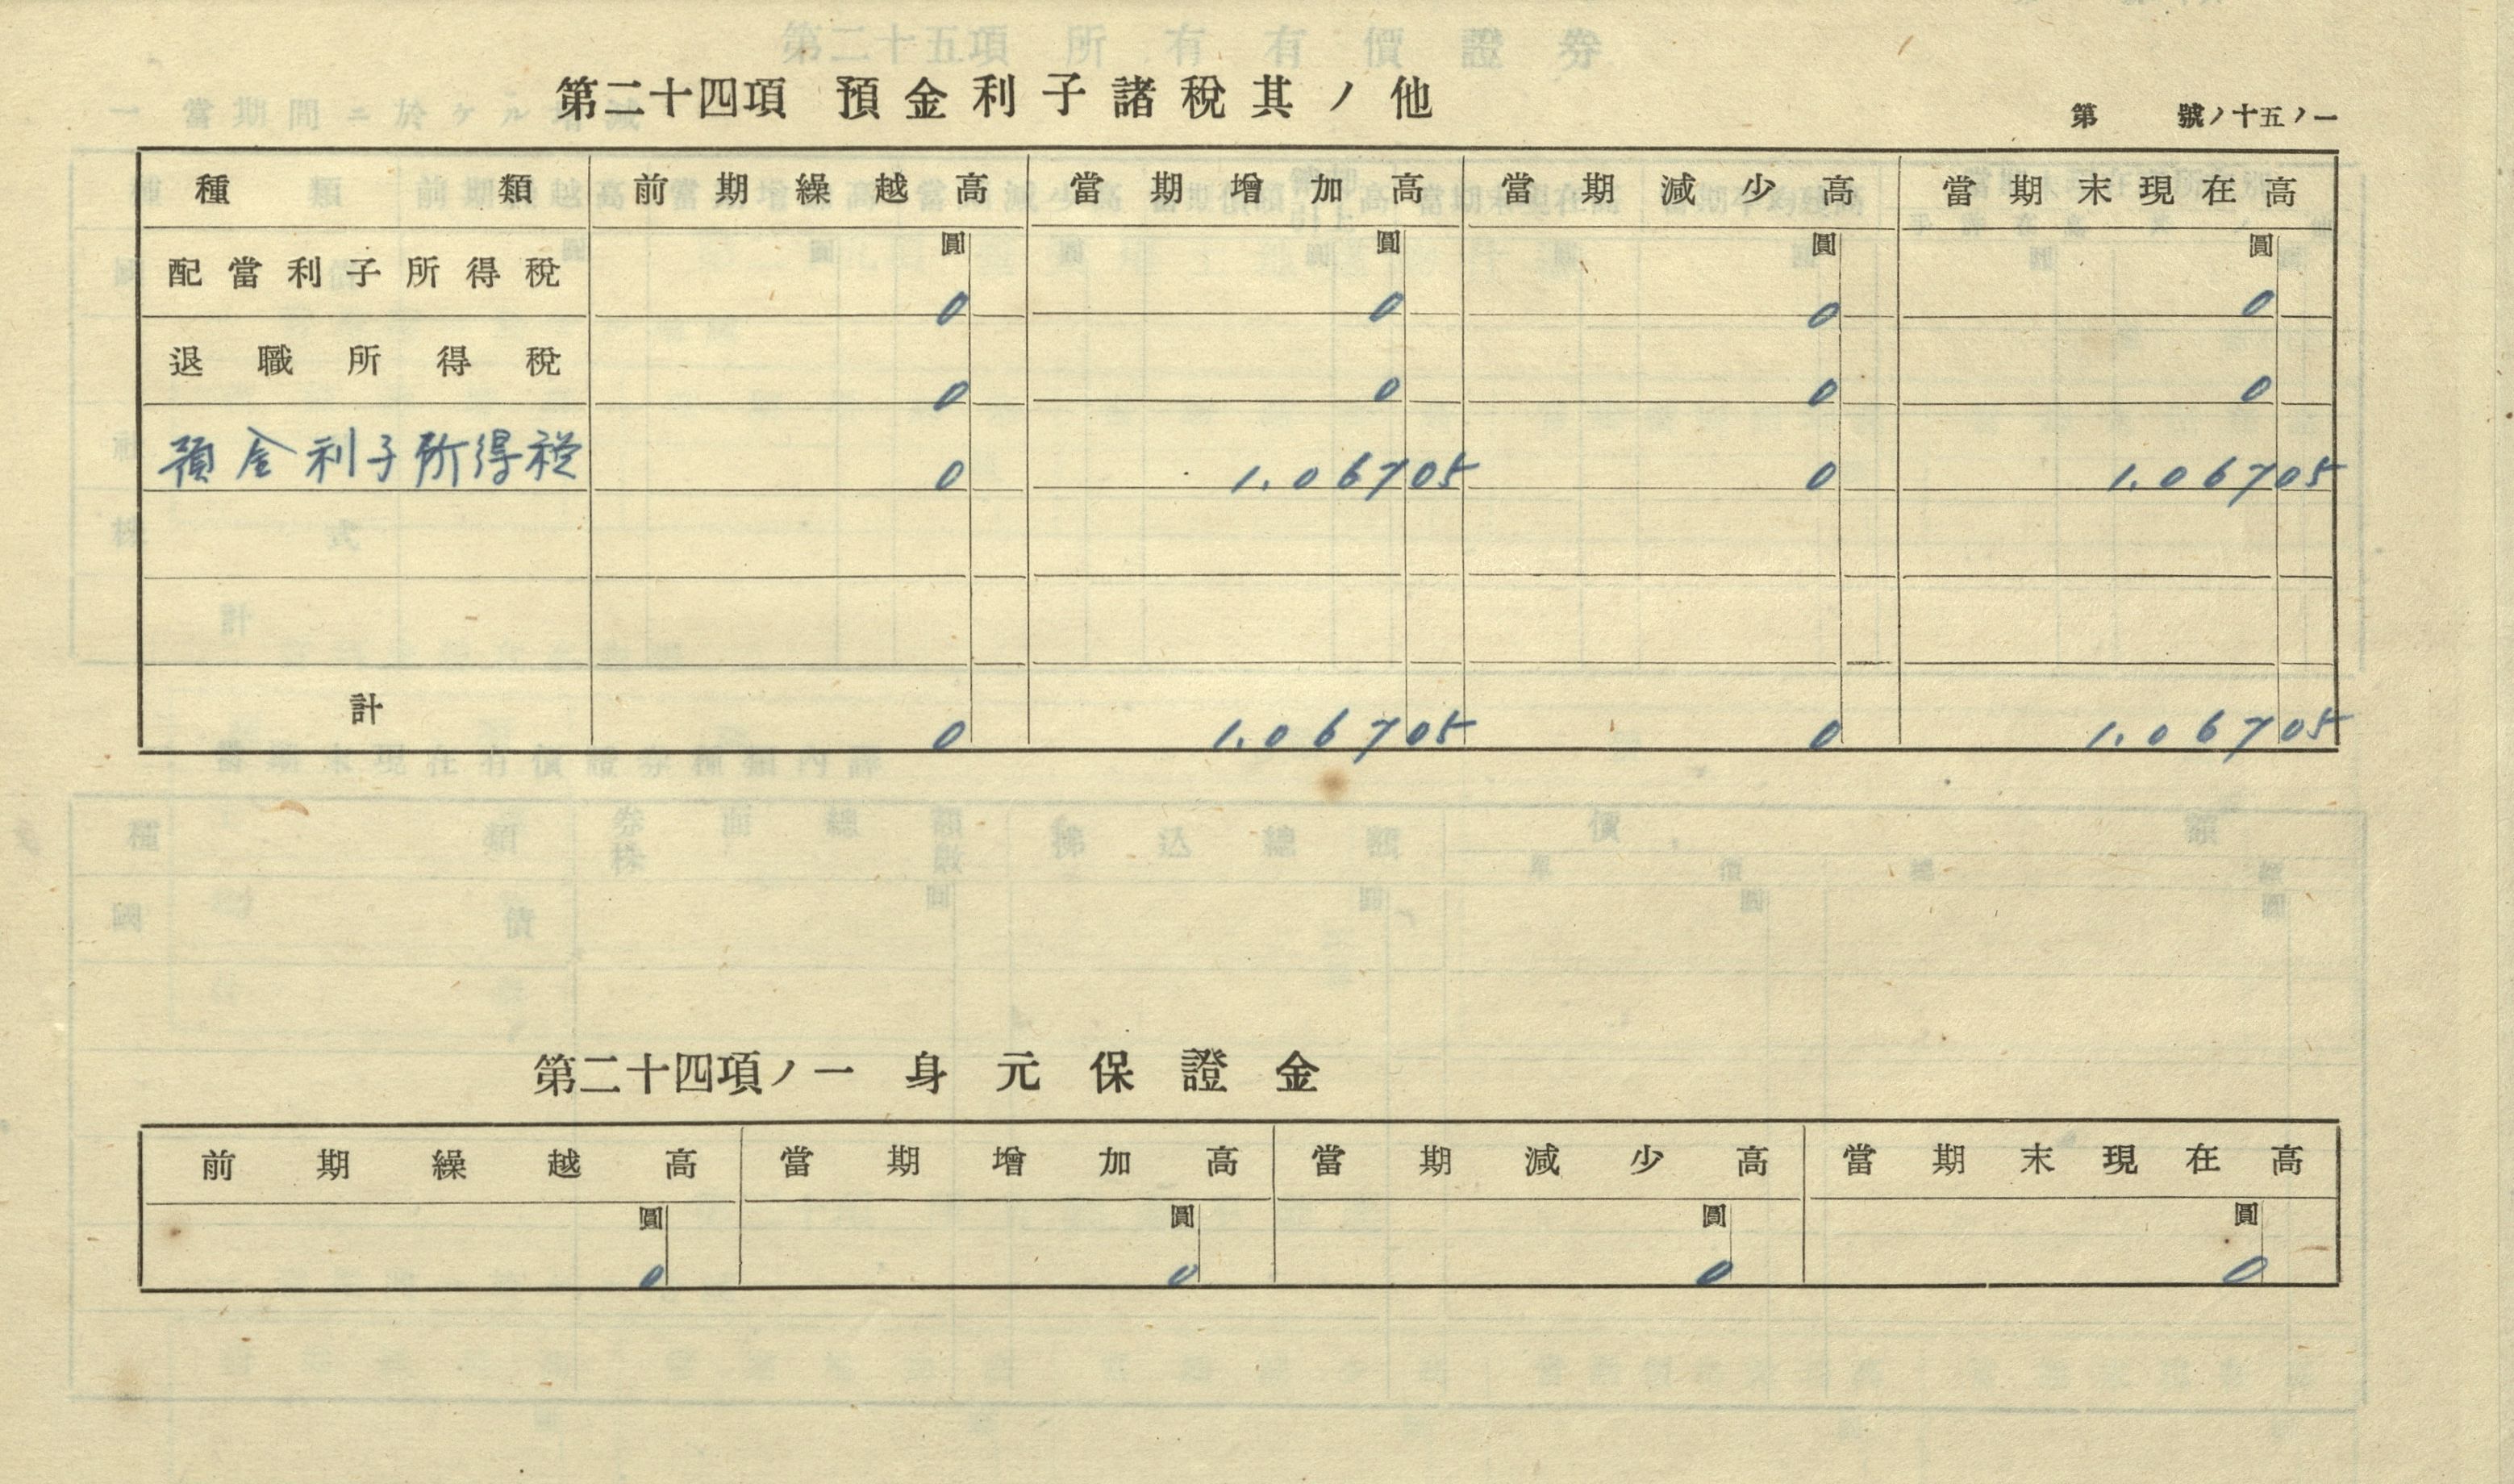 第二十四項 預金利子諸稅其ノ他
第 號ノ十五ノ一
種類 前期繰越高 當期增加高 當期減少高 當期末現在高
圓 圓 圓 圓
配當利子所得稅 0 0 0 0
退職所得稅 0 0 0 0
預金利子所得税 0 1.067 05 0 1.067 05
計 0 1.067 05 0 1.067 05
第二十四項ノ一 身元保證金
前期繰越高 當期增加高 當期減少高 當期末現在高
圓 圓 圓 圓
0 0 0 0